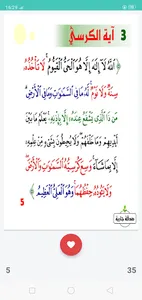 16:29
3 آية الكرسي
﴿ اللَّهُ لَا إِلَٰهَ إِلَّا هُوَ الْحَيُّ الْقَيُّومُ لَا تَأْخُذُهُ
سِنَةٌ وَلَا نَوْمٌ لَهُ مَا فِي السَّمَاوَاتِ وَمَا فِي الْأَرْضِ
مَن ذَا الَّذِي يَشْفَعُ عِندَهُ إِلَّا بِإِذْنِهِ يَعْلَمُ مَا بَيْنَ
أَيْدِيهِمْ وَمَا خَلْفَهُمْ وَلَا يُحِيطُونَ بِشَيْءٍ مِّنْ عِلْمِهِ
إِلَّا بِمَا شَاءَ وَسِعَ كُرْسِيُّهُ السَّمَاوَاتِ وَالْأَرْضَ
وَلَا يَئُودُهُ حِفْظُهُمَا وَهُوَ الْعَلِيُّ الْعَظِيمُ ﴾
5
صدقة جارية
5
35